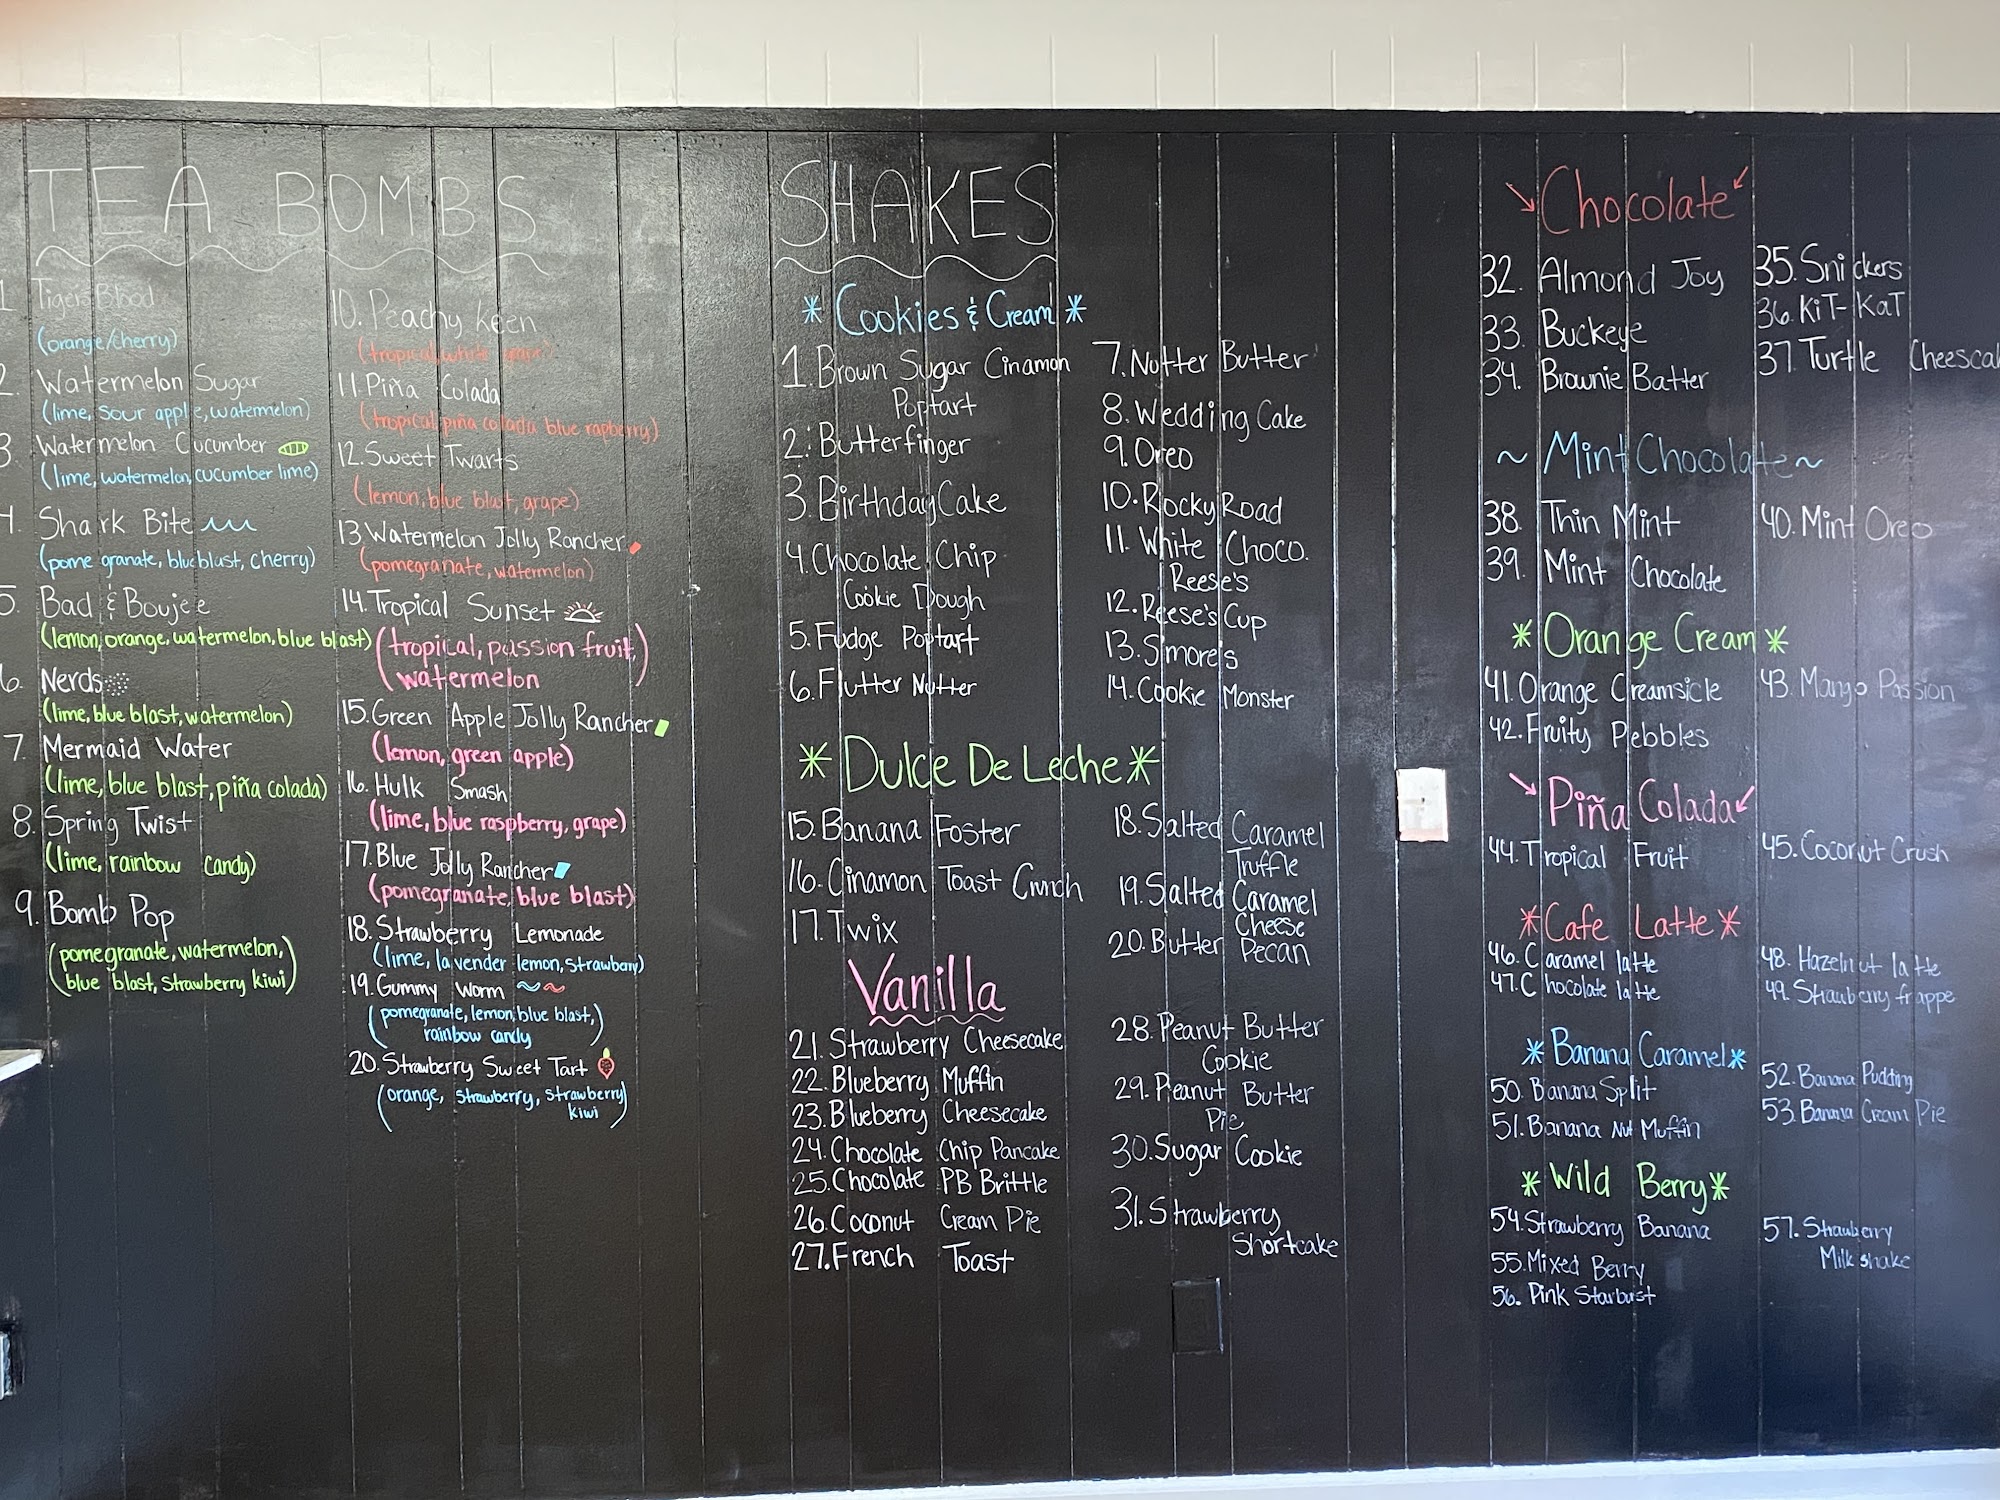 TEA BOMBS
1 Tigers Blood
(orange/cherry)
2 Watermelon Sugar
(lime, sour apple, watermelon)
3 Watermelon Cucumber
(lime, watermelon, cucumber lime)
4. Shark Bite
(pome granate, blue blast, cherry)
5. Bad & Boujee
(lemon, orange, watermelon, blue blast)
6. Nerds
(lime, blue blast, watermelon)
7. Mermaid Water
(lime, blue blast, piña colada)
8. Spring Twist
(lime, rainbow candy)
9. Bomb Pop
(pomegranate, watermelon,
blue blast, strawberry kiwi)
10. Peachy keen
(tropical, white grape)
11. Piña Colada
(tropical, piña colada blue rapberry)
12. Sweet Twarts
(lemon, blue blast, grape)
13 Watermelon Jolly Rancher
(pomegranate, watermelon)
14. Tropical Sunset
(tropical, passion fruit,
watermelon)
15. Green Apple Jolly Rancher
(lemon, green apple)
16. Hulk Smash
(lime, blue raspberry, grape)
17. Blue Jolly Rancher
(pomegranate, blue blast)
18. Strawberry Lemonade
(lime, lavender lemon, strawberry)
19. Gummy Worm
(pomegranate, lemon, blue blast,
rainbow candy)
20. Strawberry Sweet Tart
(orange, strawberry, strawberry
kiwi)
SHAKES
* Cookies & Cream *
1. Brown Sugar Cinamon
Poptart
2. Butterfinger
3. Birthday Cake
4. Chocolate Chip
Cookie Dough
5. Fudge Poptart
6. Flutter Nutter
7. Nutter Butter
8. Wedding Cake
9. Oreo
10. Rocky Road
11. White Choco.
Reese's
12. Reese's Cup
13. S'more's
14. Cookie Monster
* Dulce De Leche *
15. Banana Foster
16. Cinamon Toast Crunch
17. Twix
18. Salted Caramel
Truffle
19. Salted Caramel
Cheese
20. Butter Pecan
Vanilla
21. Strawberry Cheesecake
22. Blueberry Muffin
23. Blueberry Cheesecake
24. Chocolate Chip Pancake
25. Chocolate PB Brittle
26. Coconut Cream Pie
27. French Toast
28. Peanut Butter
Cookie
29. Peanut Butter
Pie
30. Sugar Cookie
31. Strawberry
Shortcake
Chocolate
32. Almond Joy
33. Buckeye
34. Brownie Batter
35. Snickers
36. KiT-KaT
37. Turtle Cheesecak
~ Mint Chocolate ~
38. Thin Mint
39. Mint Chocolate
40. Mint Oreo
* Orange Cream *
41. Orange Creamsicle
42. Fruity Pebbles
43. Mango Passion
Piña Colada
44. Tropical Fruit
45. Coconut Crush
* Cafe Latte *
46. Caramel latte
47. Chocolate latte
48. Hazelnut latte
49. Strawberry frappe
* Banana Caramel *
50. Banana Split
51. Banana Nut Muffin
52. Banana Pudding
53. Banana Cream Pie
* Wild Berry *
54. Strawberry Banana
55. Mixed Berry
56. Pink Starburst
57. Strawberry
Milkshake